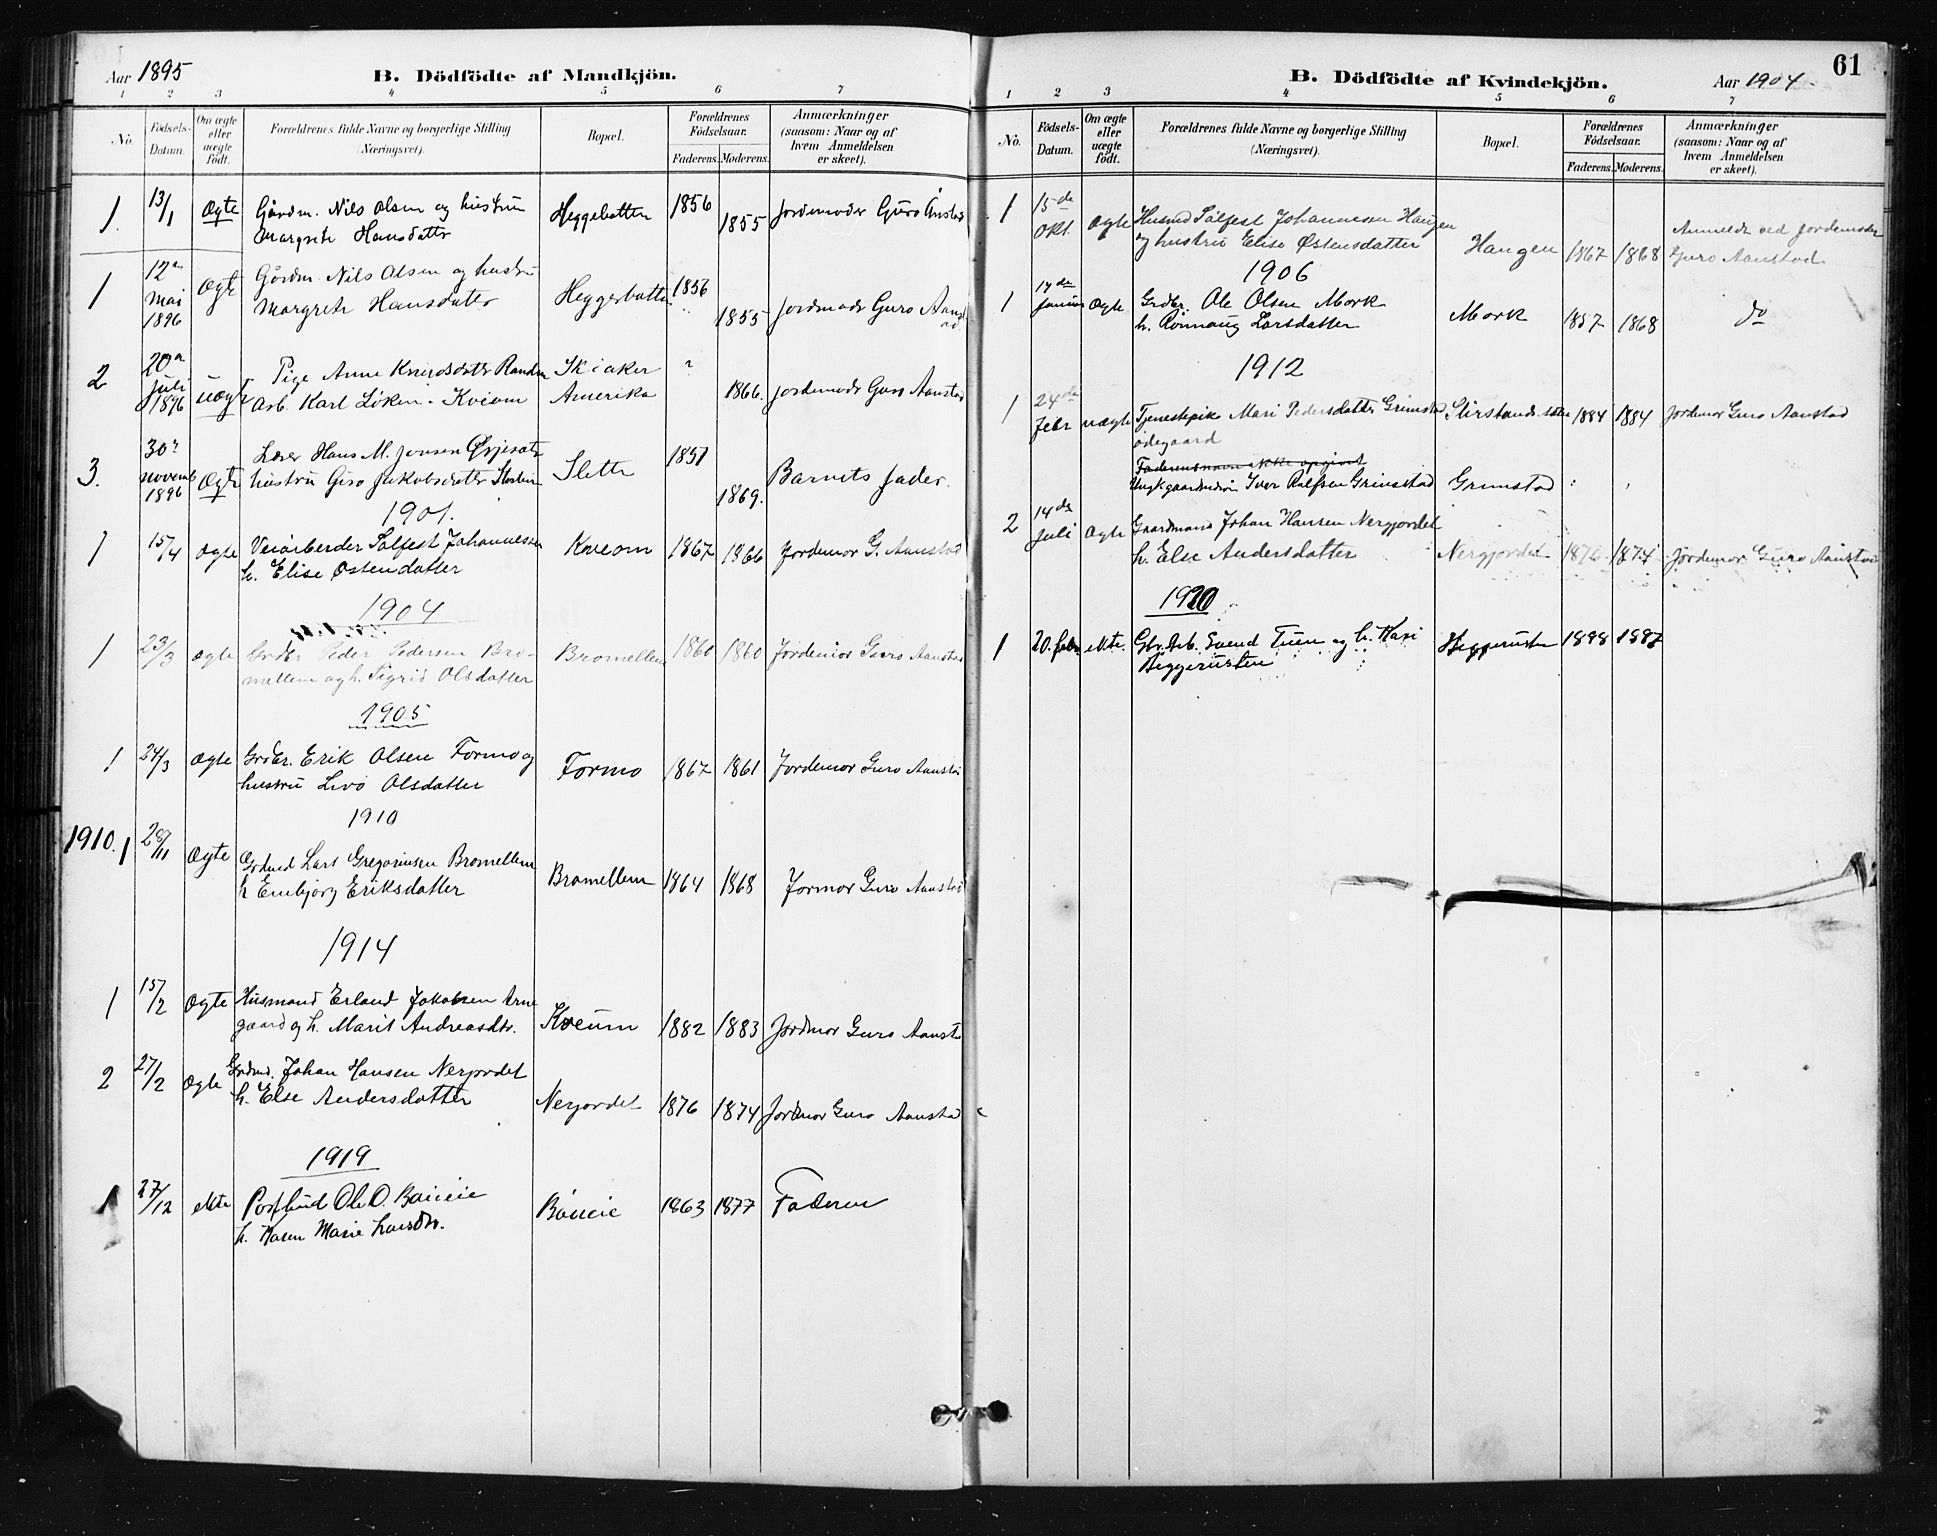 Aar 1895
B. Dödfödte af Mandkjön.
1 2 3 4 5 6 7
No.
Födsels-Datum.
Om ægte eller uægte födt.
Forældrenes fulde Navne og borgerlige Stilling (Næringsvei).
Bopæl.
Forældrenes Födselsaar.
Faderens. Moderens.
Anmærkninger (saasom: Naar og af hvem Anmeldelsen er skeet).
1. 13/1 Ægte Gårdm. Nils Olsen og hustru Heggebotten 1856 Jordemoder Guro Ånstad
Margrete Hansdatter 1855
1 12te Mai 1896 Ægte Gårdm. Nils Olsen og hustru Heggebotten 1856
Margrete Hansdatter 1855 Jordmoder Guro Aanstad
2 20de Juli 1896 uægte Pige Anne Knudsdatter Skiaker ?
Arb. Karl Löken - Kveom Amerika 1866. Jordemoder Guro Aanstad
3. 30te novemb 1896 Ægte Lærer Hans M. Jonsen Slette 1857
hustru Guro Jakobsdatter 1869. Barnets fader.
1901.
1 15/4 Ægte Veiarbeider Solfest Johannessen Kveom 1867 1866 Jordemor G. Aanstad
h. Elise Østensdatter
1904
1 23/3 Ægte Grdbr Peder Pedersen Bro- Bromellem 1860 1860 Jordemor Guro Aanstad
mellem og h. Sigrid Olsdatter
1905
1 24/3 Ægte Grdbr. Erik Olsen Formo og Formo 1867 1861 Jordemor Guro Aanstad
hustru Livo Olsdatter
1910
1910. 1 28/11 Ægte Grdmd Lars Gregoriusen Bromellem Bromellem 1864 1868 Jormor Guro Aanstad
h Embjorg Eriksdatter
1914
1 15/2 Ægte Husmand Erland Jakobsen Arne
gaard og h. Marit Andreasdtr. Kveum 1882 1883 Jordmor Guro Aansta
2 27/2 Ægte Grdmd. Johan Hansen Nerjordet
h. Else Andersdatter Nerjordet 1876 1874 Jordmor Guro Aanstad
1919
1 27/12 ekte Ole O. Baueie Baueie 1863 1877 Faderen
h. Karen Marie Larsdtr.
61
B. Dödfödte af Kvindekjön.
Aar 1904
1 2 3 4 5 6 7
No.
Födsels-Datum.
Om ægte eller uægte födt.
Forældrenes fulde Navne og borgerlige Stilling (Næringsvei).
Bopæl.
Forældrenes Födselsaar.
Faderens. Moderens.
Anmærkninger (saasom: Naar og af hvem Anmeldelsen er skeet).
1 15de Okt. Ægte Husmd Solfest Johannesen Haugen
og hustru Elise Østensdatter Haugen 1867 1868 Anmeldt ved Jordemoder Guro Aanstad
1906
1 17de Januar Ægte Grdbr. Ole Olsen Mork Mork 1857 1868 do
h. Rönnaug Larsdatter
1912
1 24de Febr uægte Tjenestepike Mari Pedersdatter Grimstad 1884 1884 Jordemor Guro Aanstad
ödegaard
Faderens navn ikke opgivet
Ungk gaardmdsön Iver Rolfsen Grimstad Grimstad
2 14de Juli Ægte Gaardmand Johan Hansen Nergjordet
h. Else Andersdatter Nergjordet 1876 1874 Jordemor Guro Aanstad
1920
1 20. febr ekte. Gbr. Arb. Svend Tuen og h. Kari Heggerusten 1898 1887
Heggerusten